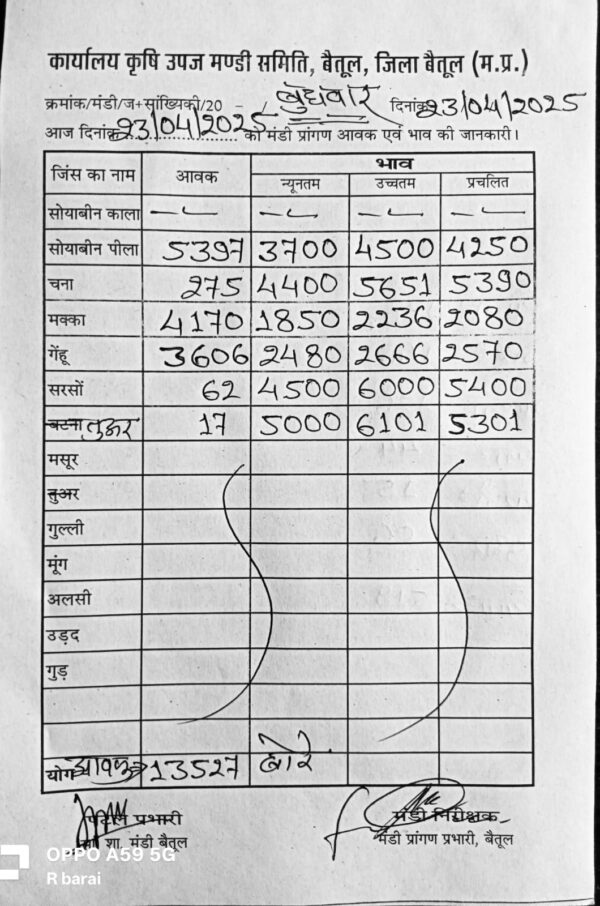 कार्यालय कृषि उपज मण्डी समिति, बैतूल, जिला बैतूल (म.प्र.)
क्रमांक/मंडी/ज+सांख्यिकी/20 - / बुधवार दिनांक 23/04/2025
आज दिनांक 23/04/2025 को मंडी प्रांगण आवक एवं भाव की जानकारी।
जिंस का नाम आवक भाव
न्यूनतम उच्चतम प्रचलित
सोयाबीन काला
सोयाबीन पीला 5397 3700 4500 4250
चना 275 4400 5651 5390
मक्का 4170 1850 2236 2080
गेंहू 3606 2480 2666 2570
सरसों 62 4500 6000 5400
बटना तुअर 17 5000 6101 5301
मसूर
तुअर
गुल्ली
मूंग
अलसी
उड़द
गुड़
योग आवक 13527 बोरे
प्रभारी मंडी निरीक्षक
शा. मंडी बैतूल मंडी प्रांगण प्रभारी, बैतूल
OPPO A59 5G
R barai